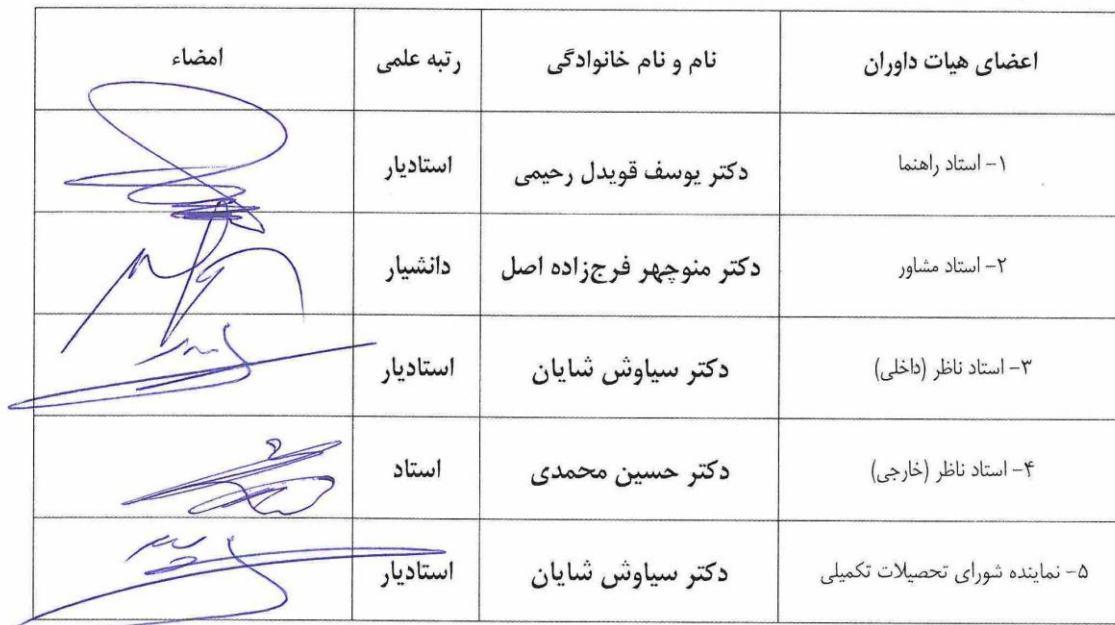 اعضای هیات داوران نام و نام خانوادگی رتبه علمی امضاء
۱- استاد راهنما دکتر یوسف قویدل رحیمی استادیار
۲- استاد مشاور دکتر منوچهر فرج‌زاده اصل دانشیار
۳- استاد ناظر (داخلی) دکتر سیاوش شایان استادیار
۴- استاد ناظر (خارجی) دکتر حسین محمدی استاد
۵- نماینده شورای تحصیلات تکمیلی دکتر سیاوش شایان استادیار